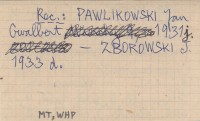 Rec.: PAWLIKOWSKI Jan
Gwalbert 1931
— ZBOROWSKI J.
1933 d.
MT, WHP